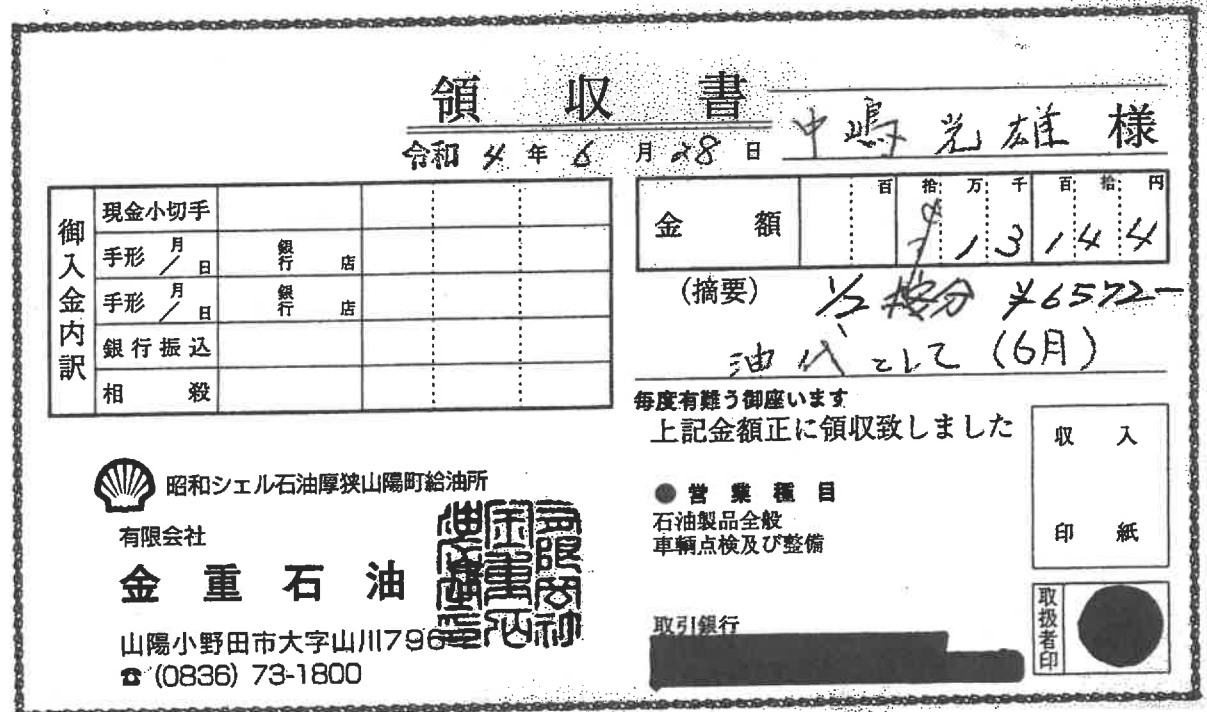 領収書
中嶋光雄 様
令和4年6月28日
御入金内訳
現金小切手
手形 月/日 銀行 店
手形 月/日 銀行 店
銀行振込
相殺
金額
百拾万千百拾円
13144
(摘要) 1/2 按分 ¥6572-
油代として(6月)
毎度有難う御座います
上記金額正に領収致しました
収入印紙
昭和シェル石油厚狭山陽町給油所
有限会社
金重石油
山陽小野田市大字山川796
☎(0836) 73-1800
●営業種目
石油製品全般
車輌点検及び整備
取引銀行
取扱者印